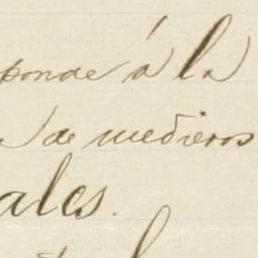 ponde á la
de medieros
ales.